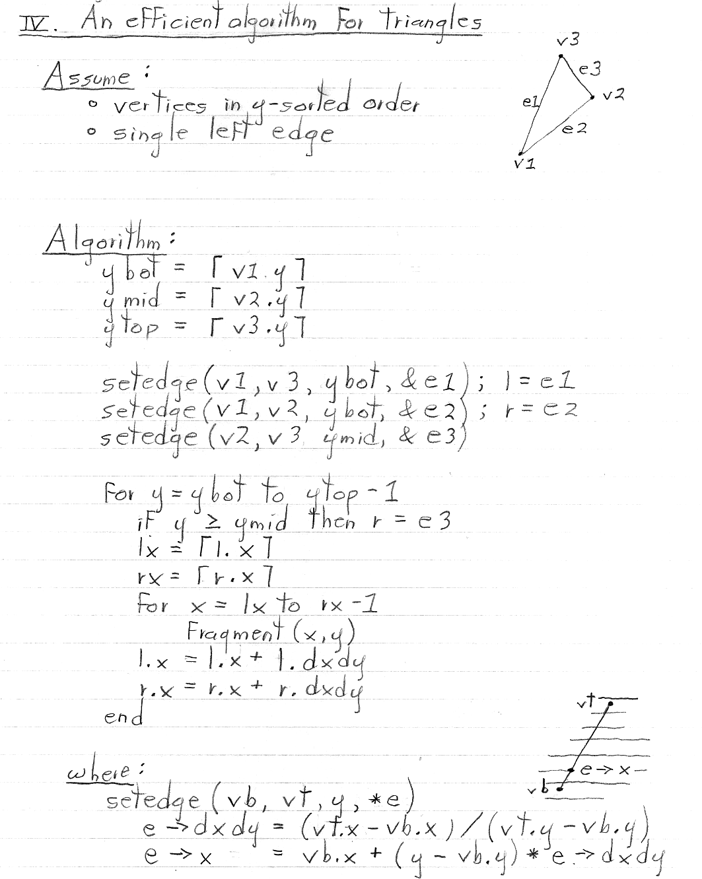 IV. An efficient algorithm for triangles
Assume:
◦ vertices in y-sorted order
◦ single left edge
v3
e3
v2
e1
e2
v1
Algorithm:
ybot = ⌈v1.y⌉
ymid = ⌈v2.y⌉
ytop = ⌈v3.y⌉
setedge(v1, v3, ybot, &e1); l = e1
setedge(v1, v2, ybot, &e2); r = e2
setedge(v2, v3 ymid, &e3)
for y = ybot to ytop-1
if y ≥ ymid then r = e3
lx = ⌈l.x⌉
rx = ⌈r.x⌉
for x = lx to rx-1
Fragment(x,y)
l.x = l.x + l.dxdy
r.x = r.x + r.dxdy
end
vt
e→x
vb
where:
setedge(vb, vt, y, *e)
e→dxdy = (vt.x-vb.x)/(vt.y-vb.y)
e→x = vb.x + (y-vb.y)*e→dxdy